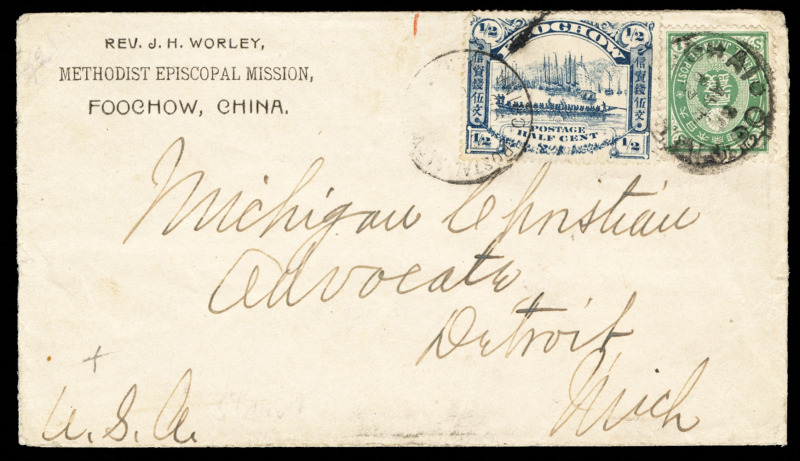 REV. J. H. WORLEY,
METHODIST EPISCOPAL MISSION,
FOOCHOW, CHINA.
1/2 FOOCHOW 1/2
信資錢伍文
信資錢伍文
POSTAGE
1/2 HALF CENT 1/2
POSTAL
Michigan Christian
Advocate
Detroit
Mich
U. S. A.